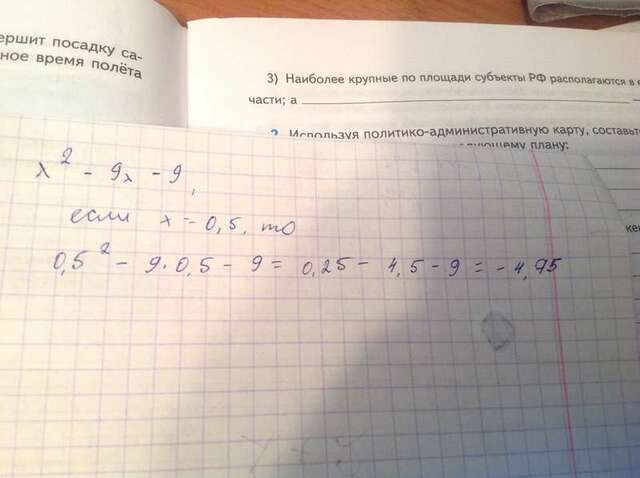 ершит посадку са-
ное время полёта
3) Наиболее крупные по площади субъекты РФ располагаются в
части; а
2. Используя политико-административную карту, составьте
плану:
x² - 9x - 9,
если x = 0,5, то
0,5² - 9·0,5 - 9 = 0,25 - 4,5 - 9 = -4,75